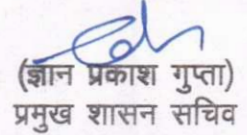 (ज्ञान प्रकाश गुप्ता)
प्रमुख शासन सचिव